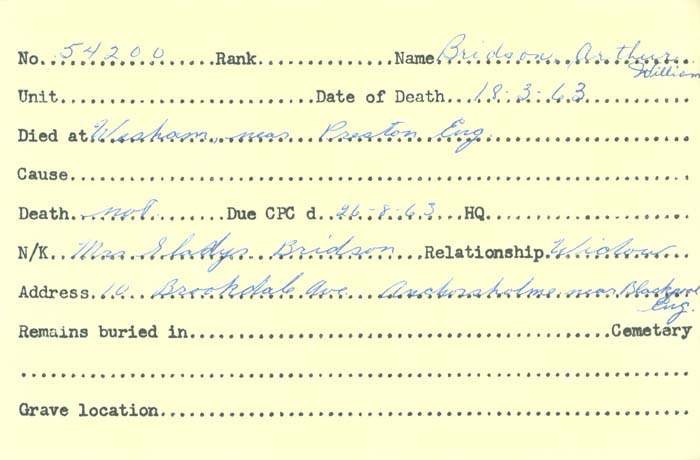 No. 54200 Rank Name Bridson, Arthur William
Unit Date of Death 18-3-63
Died at Wesham, near Preston Eng.
Cause
Death not Due CPC d. 26-8-63 HQ
N/K Mrs Gladys Bridson Relationship Widow
Address 10 Brookdale Ave Anchorsholme near Blackpool Eng.
Remains buried in Cemetery
Grave location